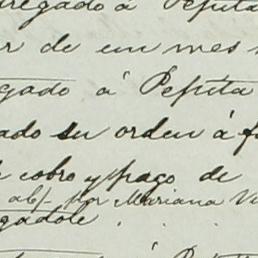 tregado á Pepita
r de un mes
gado á Pepita
ado su orden á fa
cobro y pago de
ab/- por Mariana Vi
gadole
á Pepita